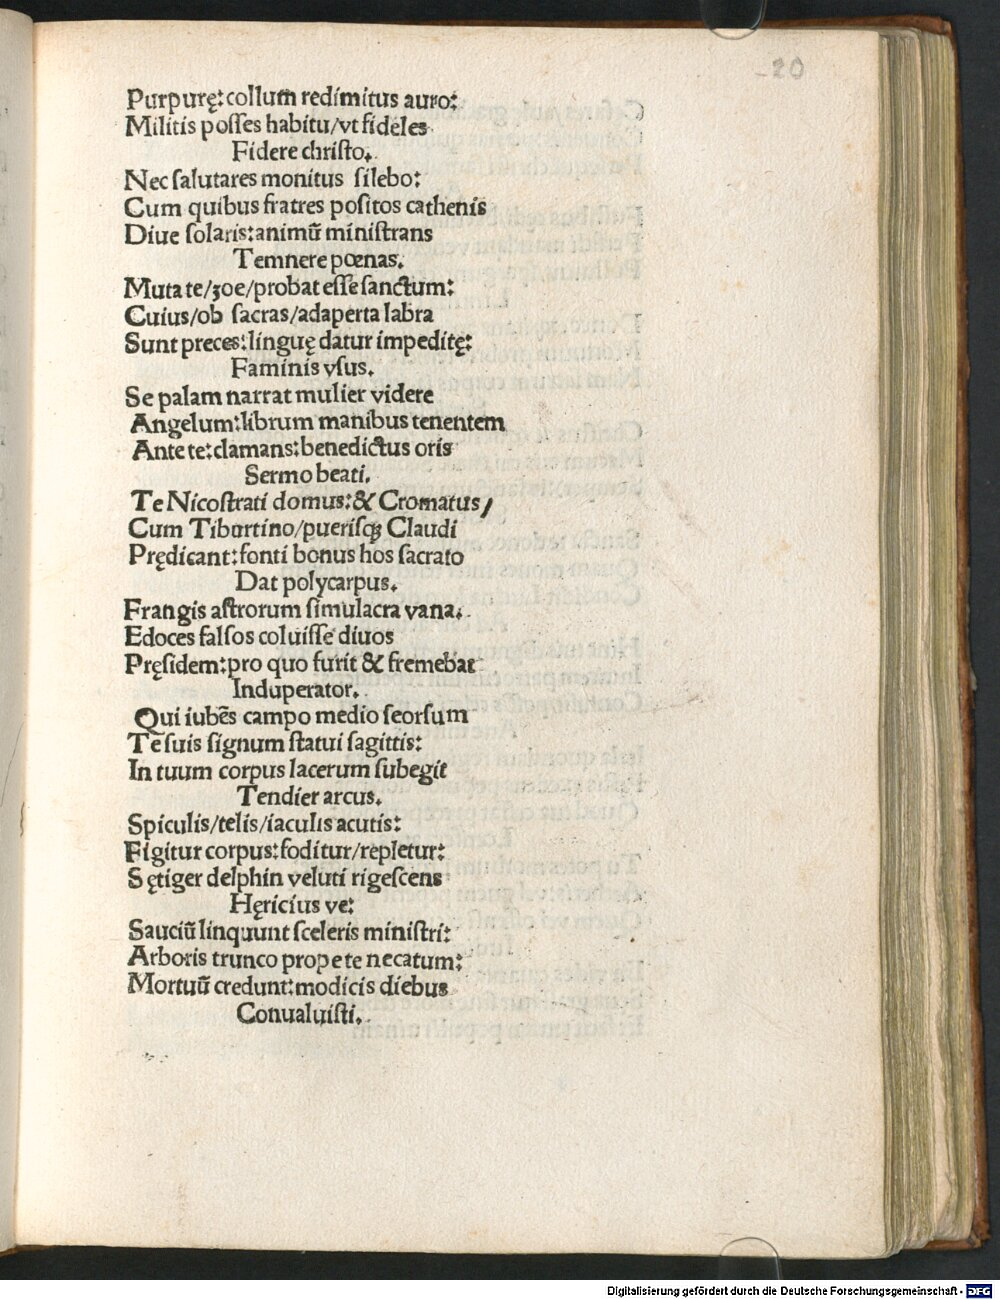 -20
Purpurę: collum redimitus auro:
Militis posses habitu/vt fideles
Fidere christo.
Nec salutares monitus silebo:
Cum quibus fratres positos cathenis
Diue solaris: animũ ministrans
Temnere pœnas.
Muta te/zoe/probat esse sanctum:
Cuius/ob sacras/adaperta labra
Sunt preces: linguę datur impeditę:
Faminis vsus.
Se palam narrat mulier videre
Angelum: librum manibus tenentem
Ante te: clamans: benedictus oris
Sermo beati.
Te Nicostrati domus: & Cromatus/
Cum Tiburtino/puerisqꝫ Claudi
Prędicant: fonti bonus hos sacrato
Dat polycarpus.
Frangis astrorum simulacra vana.
Edoces falsos coluisse diuos
Pręsidem: pro quo furit & fremebat
Induperator.
Qui iubẽs campo medio seorsum
Te suis signum statui sagittis:
In tuum corpus lacerum subegit
Tendier arcus.
Spiculis/telis/iaculis acutis:
Figitur corpus: foditur/repletur:
Sętiger delphin veluti rigescens
Hęricius ve:
Sauciũ linquunt sceleris ministri:
Arboris trunco prope te necatum:
Mortuũ credunt: modicis diebus
Conualuisti.
Digitalisierung gefördert durch die Deutsche Forschungsgemeinschaft - DFG